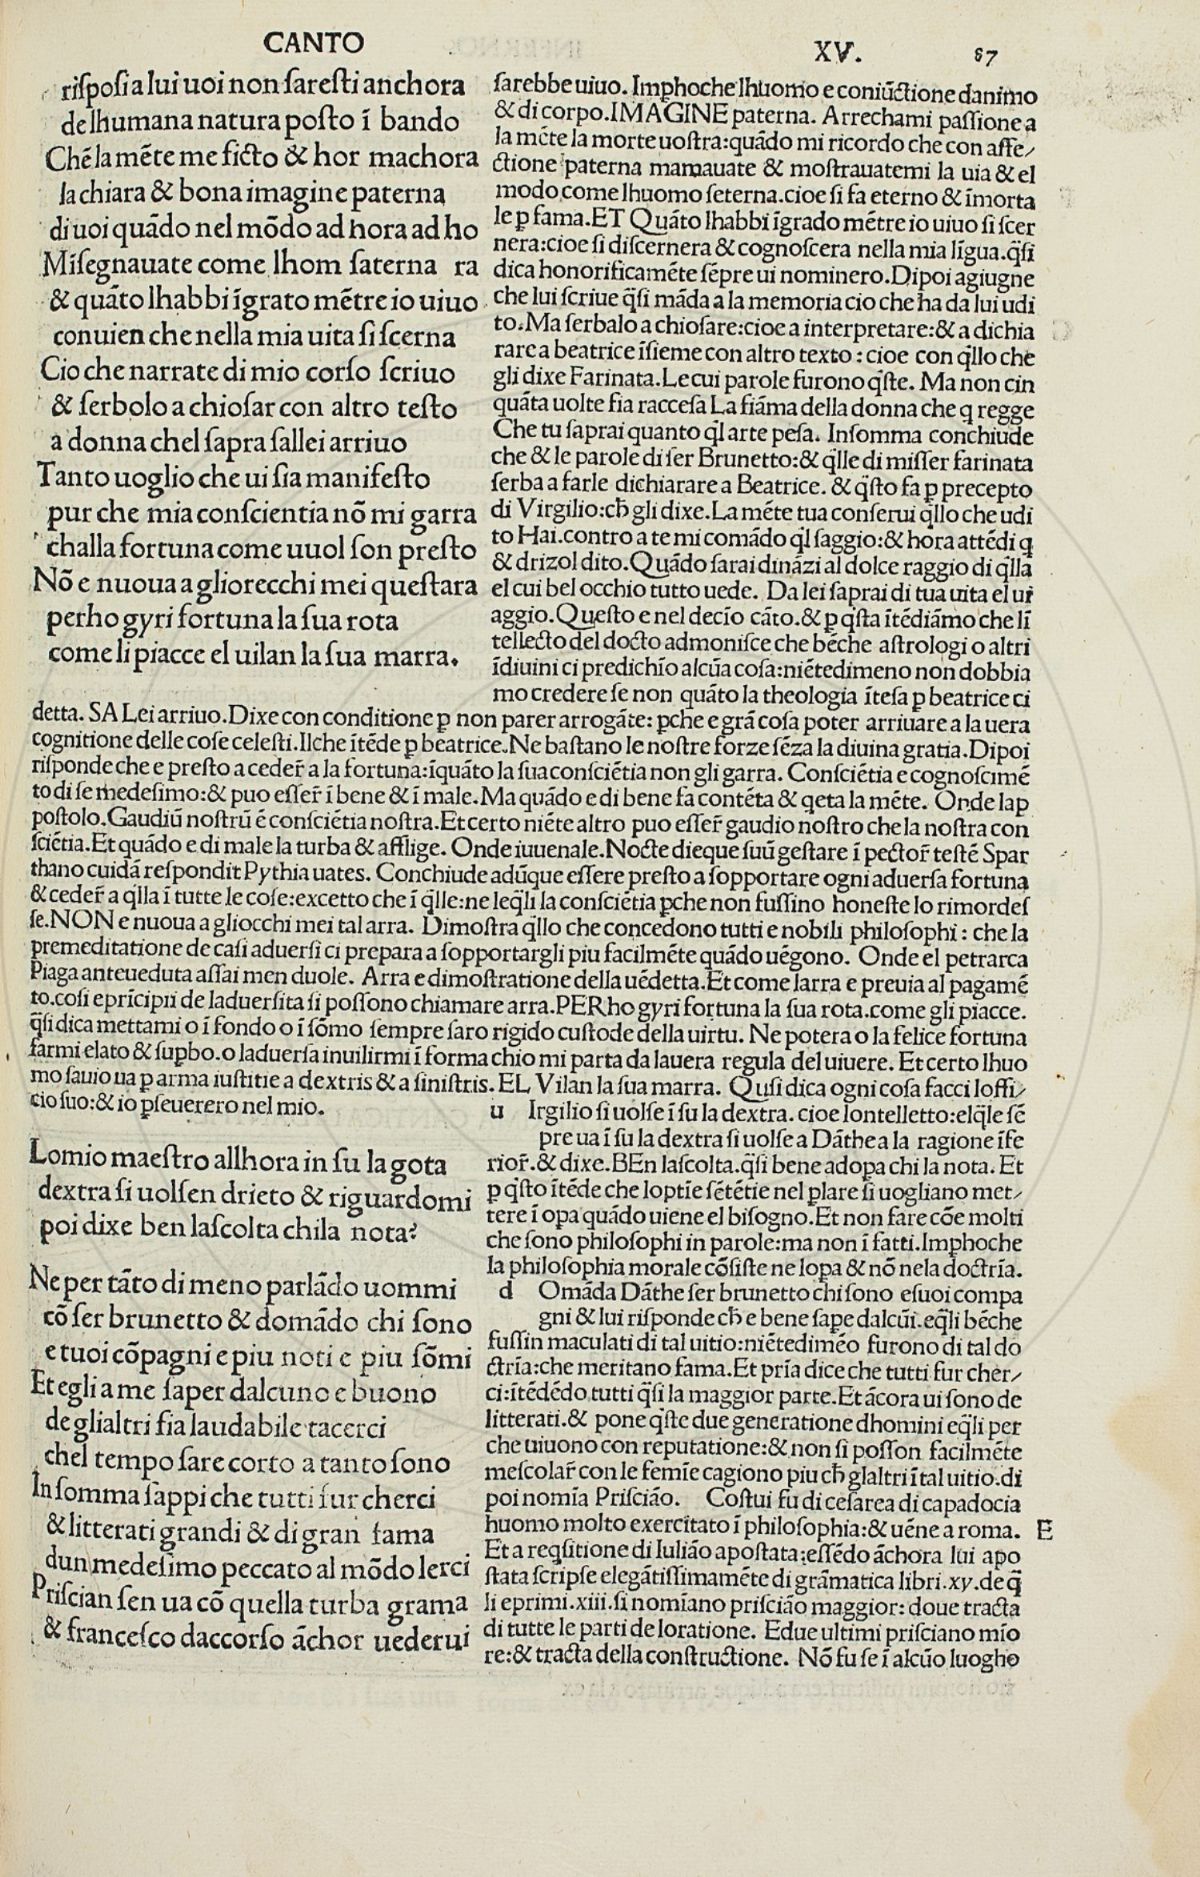 CANTO
XV.
87
riſpoſi a lui uoi non ſareſti anchora
de lhumana natura poſto ĩ bando
Chẽ la mẽte me ficto & hor machora
la chiara & bona imagine paterna
di uoi quãdo nel mõdo ad hora ad ho
Miſegnauate come lhom ſaterna ra
& quãto lhabbi ĩgrato mẽtre io uiuo
conuien che nella mia uita ſi ſcerna
Cio che narrate di mio corſo ſcriuo
& ſerbolo a chioſar con altro teſto
a donna chel ſapra ſallei arriuo
Tanto uoglio che ui ſia manifeſto
pur che mia conſcientia nõ mi garra
challa fortuna come uuol ſon preſto
Nõ e nuoua a gliorecchi mei queſtara
perho gyri fortuna la ſua rota
come li piacce el uilan la ſua marra.
ſarebbe uiuo. Imphoche lhuomo e coniũctione danimo
& di corpo. IMAGINE paterna. Arrechami paſſione a
la mẽte la morte uoſtra: quãdo mi ricordo che con affe⸗
ctione paterna mamauate & moſtrauatemi la uia & el
modo come lhuomo ſeterna. cioe ſi fa eterno & ĩmorta
le ꝑ fama. ET Quãto lhabbi ĩgrado mẽtre io uiuo ſi ſcer
nera: cioe ſi diſcernera & cognoſcera nella mia lĩgua. q̃ſi
dica honorificamẽte ſẽpre ui nominero. Dipoi agiugne
che lui ſcriue q̃ſi mãda a la memoria cio che ha da lui udi
to. Ma ſerbalo a chioſare: cioe a interpretare: & a dichia
rare a beatrice ĩſieme con altro texto: cioe con q̃llo che
gli dixe Farinata. Le cui parole furono q̃ſte. Ma non cin
quãta uolte fia racceſa La fiãma della donna che q regge
Che tu ſaprai quanto q̃l arte peſa. Inſomma conchiude
che & le parole di ſer Brunetto: & q̃lle di miſſer farinata
ſerba a farle dichiarare a Beatrice. & q̃ſto fa ꝑ precepto
di Virgilio: ch̃ gli dixe. La mẽte tua conſerui q̃llo che udi
to Hai. contro a te mi comãdo q̃l ſaggio: & hora attẽdi q
& drizol dito. Quãdo ſarai dinãzi al dolce raggio di q̃lla
el cui bel occhio tutto uede. Da lei ſaprai di tua uita el ui
aggio. Queſto e nel decĩo cãto. & ꝑ q̃ſta ĩtẽdiãmo che lĩ
tellecto del docto admoniſce che bẽche aſtrologi o altri
ĩdiuini ci predichĩo alcũa coſa: niẽtedimeno non dobbia
mo credere ſe non quãto la theologia ĩteſa ꝑ beatrice ci
detta. SA Lei arriuo. Dixe con conditione ꝑ non parer arrogãte: ꝑche e grã coſa poter arriuare a la uera
cognitione delle coſe celeſti. Ilche ĩtẽde ꝑ beatrice. Ne baſtano le noſtre forze ſẽza la diuina gratia. Dipoi
riſponde che e preſto a ceder̃ a la fortuna: ĩquãto la ſua conſciẽtia non gli garra. Conſciẽtia e cognoſcimẽ
to di ſe medeſimo: & puo eſſer̃ ĩ bene & ĩ male. Ma quãdo e di bene fa contẽta & q̃eta la mẽte. Onde lap
poſtolo. Gaudiũ noſtrũ ẽ conſciẽtia noſtra. Et certo niẽte altro puo eſſer̃ gaudio noſtro che la noſtra con
ſciẽtia. Et quãdo e di male la turba & afflige. Onde iuuenale. Nocte dieque ſuũ geſtare ĩ pector̃ teſtẽ Spar
thano cuidã reſpondit Pythia uates. Conchiude adũque eſſere preſto a ſopportare ogni aduerſa fortuna
& ceder̃ a q̃lla ĩ tutte le coſe: excetto che ĩ q̃lle: ne leq̃li la conſciẽtia ꝑche non fuſſino honeſte lo rimordeſ
ſe. NON e nuoua a gliocchi mei tal arra. Dimoſtra q̃llo che concedono tutti e nobili philoſophi: che la
premeditatione de caſi aduerſi ci prepara a ſopportargli piu facilmẽte quãdo uẽgono. Onde el petrarca
Piaga anteueduta aſſai men duole. Arra e dimoſtratione della uẽdetta. Et come larra e preuia al pagamẽ
to. coſi e prĩcipii de laduerſita ſi poſſono chiamare arra. PERho gyri fortuna la ſua rota. come gli piacce.
q̃ſi dica mettami o ĩ fondo o ĩ ſõmo ſempre ſaro rigido cuſtode della uirtu. Ne potera o la felice fortuna
farmi elato & ſuꝑbo. o laduerſa inuilirmi ĩ forma chio mi parta da la uera regula del uiuere. Et certo lhuo
mo ſauio ua ꝑ arma iuſtitie a dextris & a ſiniſtris. EL Vilan la ſua marra. Quſi dica ogni coſa facci loffi⸗
cio ſuo: & io ꝑſeuerero nel mio.
Lo mio maeſtro allhora in ſu la gota
dextra ſi uolſen drieto & riguardomi
poi dixe ben laſcolta chi la nota?
Ne per tãto di meno parlãdo uommi
cõ ſer brunetto & domãdo chi ſono
e tuoi cõpagni e piu noti e piu ſõmi
Et egli a me ſaper dalcuno e buono
de glialtri fia laudabile tacerci
chel tempo ſare corto a tanto ſono
In ſomma ſappi che tutti fur cherci
& litterati grandi & di gran fama
dun medeſimo peccato al mõdo lerci
Priſcian ſen ua cõ quella turba grama
& franceſco daccorſo ãchor uederui
u Irgilio ſi uolſe ĩ ſu la dextra. cioe lontelletto: elq̃le ſẽ
pre ua ĩ ſu la dextra ſi uolſe a Dãthe a la ragione ĩfe
rior̃. & dixe. BEn laſcolta. q̃ſi bene adopa chi la nota. Et
ꝑ q̃ſto ĩtẽde che loptĩe ſẽtẽtie nel ꝑlare ſi uogliano met⸗
tere ĩ opa quãdo uiene el biſogno. Et non fare cõe molti
che ſono philoſophi in parole: ma non ĩ fatti. Imphoche
la philoſophia morale cõſiſte ne lopa & nõ nela doctrĩa.
d Omãda Dãthe ſer brunetto chi ſono e ſuoi compa
gni & lui riſponde ch̃ e bene ſape dalcũi. eq̃li bẽche
fuſſin maculati di tal uitio: niẽtedimẽo furono di tal do
ctrĩa: che meritano fama. Et prĩa dice che tutti fur cher⸗
ci: ĩtẽdẽdo tutti q̃ſi la maggior parte. Et ãcora ui ſono de
litterati. & pone q̃ſte due generatione dhomini eq̃li per
che uiuono con reputatione: & non ſi poſſon facilmẽte
meſcolar̃ con le femĩe cagiono piu ch̃ glaltri ĩ tal uitio. di
poi nomĩa Priſcião. Coſtui fu di ceſarea di capadocia
huomo molto exercitato ĩ philoſophia: & uẽne a roma. E
Et a reqſitione di Iulião apoſtata: eſſẽdo ãchora lui apo
ſtata ſcripſe elegãtiſſimamẽte di grãmatica libri. xy. de q̃
li e primi. xiii. ſi nomĩano priſcião maggior: doue tracta
di tutte le parti de loratione. E due ultimi priſciano mĩo
re: & tracta della conſtructione. Nõ fu ſe ĩ alcũo luogho